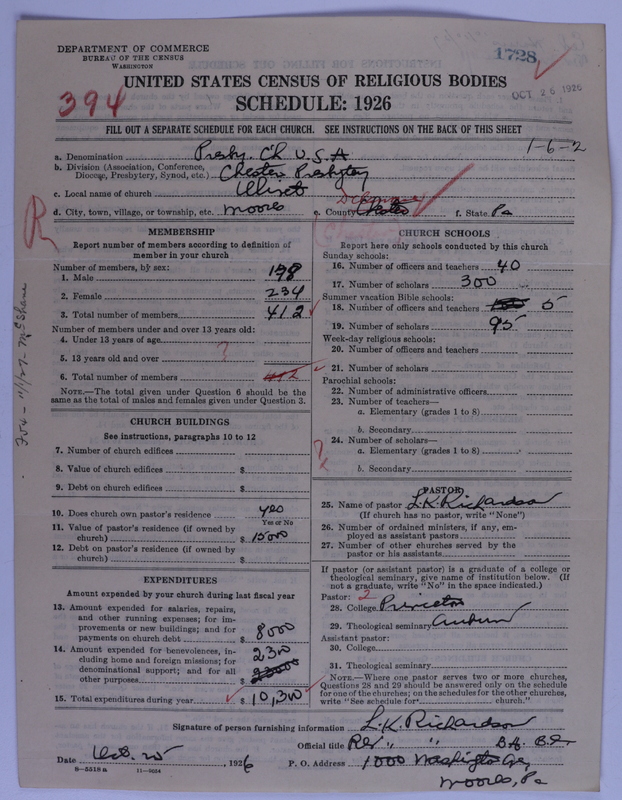 DEPARTMENT OF COMMERCE
BUREAU OF THE CENSUS
WASHINGTON
1728
UNITED STATES CENSUS OF RELIGIOUS BODIES
394
SCHEDULE: 1926
OCT 26 1926
FILL OUT A SEPARATE SCHEDULE FOR EACH CHURCH. SEE INSTRUCTIONS ON THE BACK OF THIS SHEET
1-6-2
a. Denomination Presby. Ch U.S.A
b. Division (Association, Conference, Diocese, Presbytery, Synod, etc.) Chester Presbytery
c. Local name of church
d. City, town, village, or township, etc. Moores e. County Chester Delaware f. State Pa
R
MEMBERSHIP
Report number of members according to definition of
member in your church
Number of members, by sex:
1. Male 178
2. Female 234
3. Total number of members 412
Number of members under and over 13 years old:
4. Under 13 years of age
?
5. 13 years old and over
6. Total number of members 412
NOTE.—The total given under Question 6 should be
same as the total of males and females given under Question 3.
CHURCH BUILDINGS
See instructions, paragraphs 10 to 12
7. Number of church edifices
8. Value of church edifices $
9. Debt on church edifices $
10. Does church own pastor's residence yes
Yes or No
11. Value of pastor's residence (if owned by
church) $ 15000
12. Debt on pastor's residence (if owned by
church) $
EXPENDITURES
Amount expended by your church during last fiscal year
13. Amount expended for salaries, repairs,
and other running expenses; for im-
provements or new buildings; and for
payments on church debt $ 8000
14. Amount expended for benevolences, in-
cluding home and foreign missions; for
denominational support; and for all
other purposes 2300
15. Total expenditures during year $ 10,300
CHURCH SCHOOLS
Report here only schools conducted by this church
Sunday schools:
16. Number of officers and teachers 40
17. Number of scholars 300
Summer vacation Bible schools:
18. Number of officers and teachers 5
19. Number of scholars 95
Week-day religious schools:
20. Number of officers and teachers
21. Number of scholars
Parochial schools:
22. Number of administrative officers
23. Number of teachers—
a. Elementary (grades 1 to 8)
b. Secondary
24. Number of scholars—
a. Elementary (grades 1 to 8)
b. Secondary
PASTOR
25. Name of pastor L.K. Richardson
(If church has no pastor, write "None")
26. Number of ordained ministers, if any, em-
ployed as assistant pastors
27. Number of other churches served by the
pastor or his assistants
If pastor (or assistant pastor) is a graduate of a college or
theological seminary, give name of institution below. (If
not a graduate, write "No" in the space indicated.)
Pastor: 2
28. College Princeton
29. Theological seminary Auburn
Assistant pastor:
30. College
31. Theological seminary
NOTE.—Where one pastor serves two or more churches,
Questions 28 and 29 should be answered only on the schedule
for one of the churches; on the schedules for the other churches,
write "See schedule for church."
Signature of person furnishing information L.K. Richardson
Official title Rev. " "
Date Oct. 25, 1926 P. O. Address 1000 Washington Ave,
8-5518a 11-9024 Moores, Pa